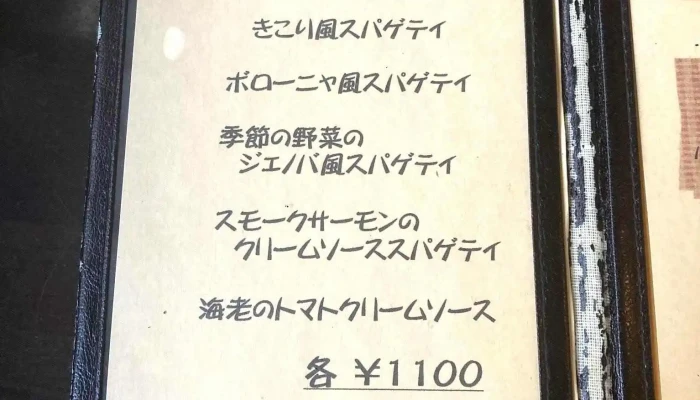 きこり風スパゲティ
ボローニャ風スパゲティ
季節の野菜の
ジェノバ風スパゲティ
スモークサーモンの
クリームソーススパゲティ
海老のトマトクリームソース
各 ¥1100